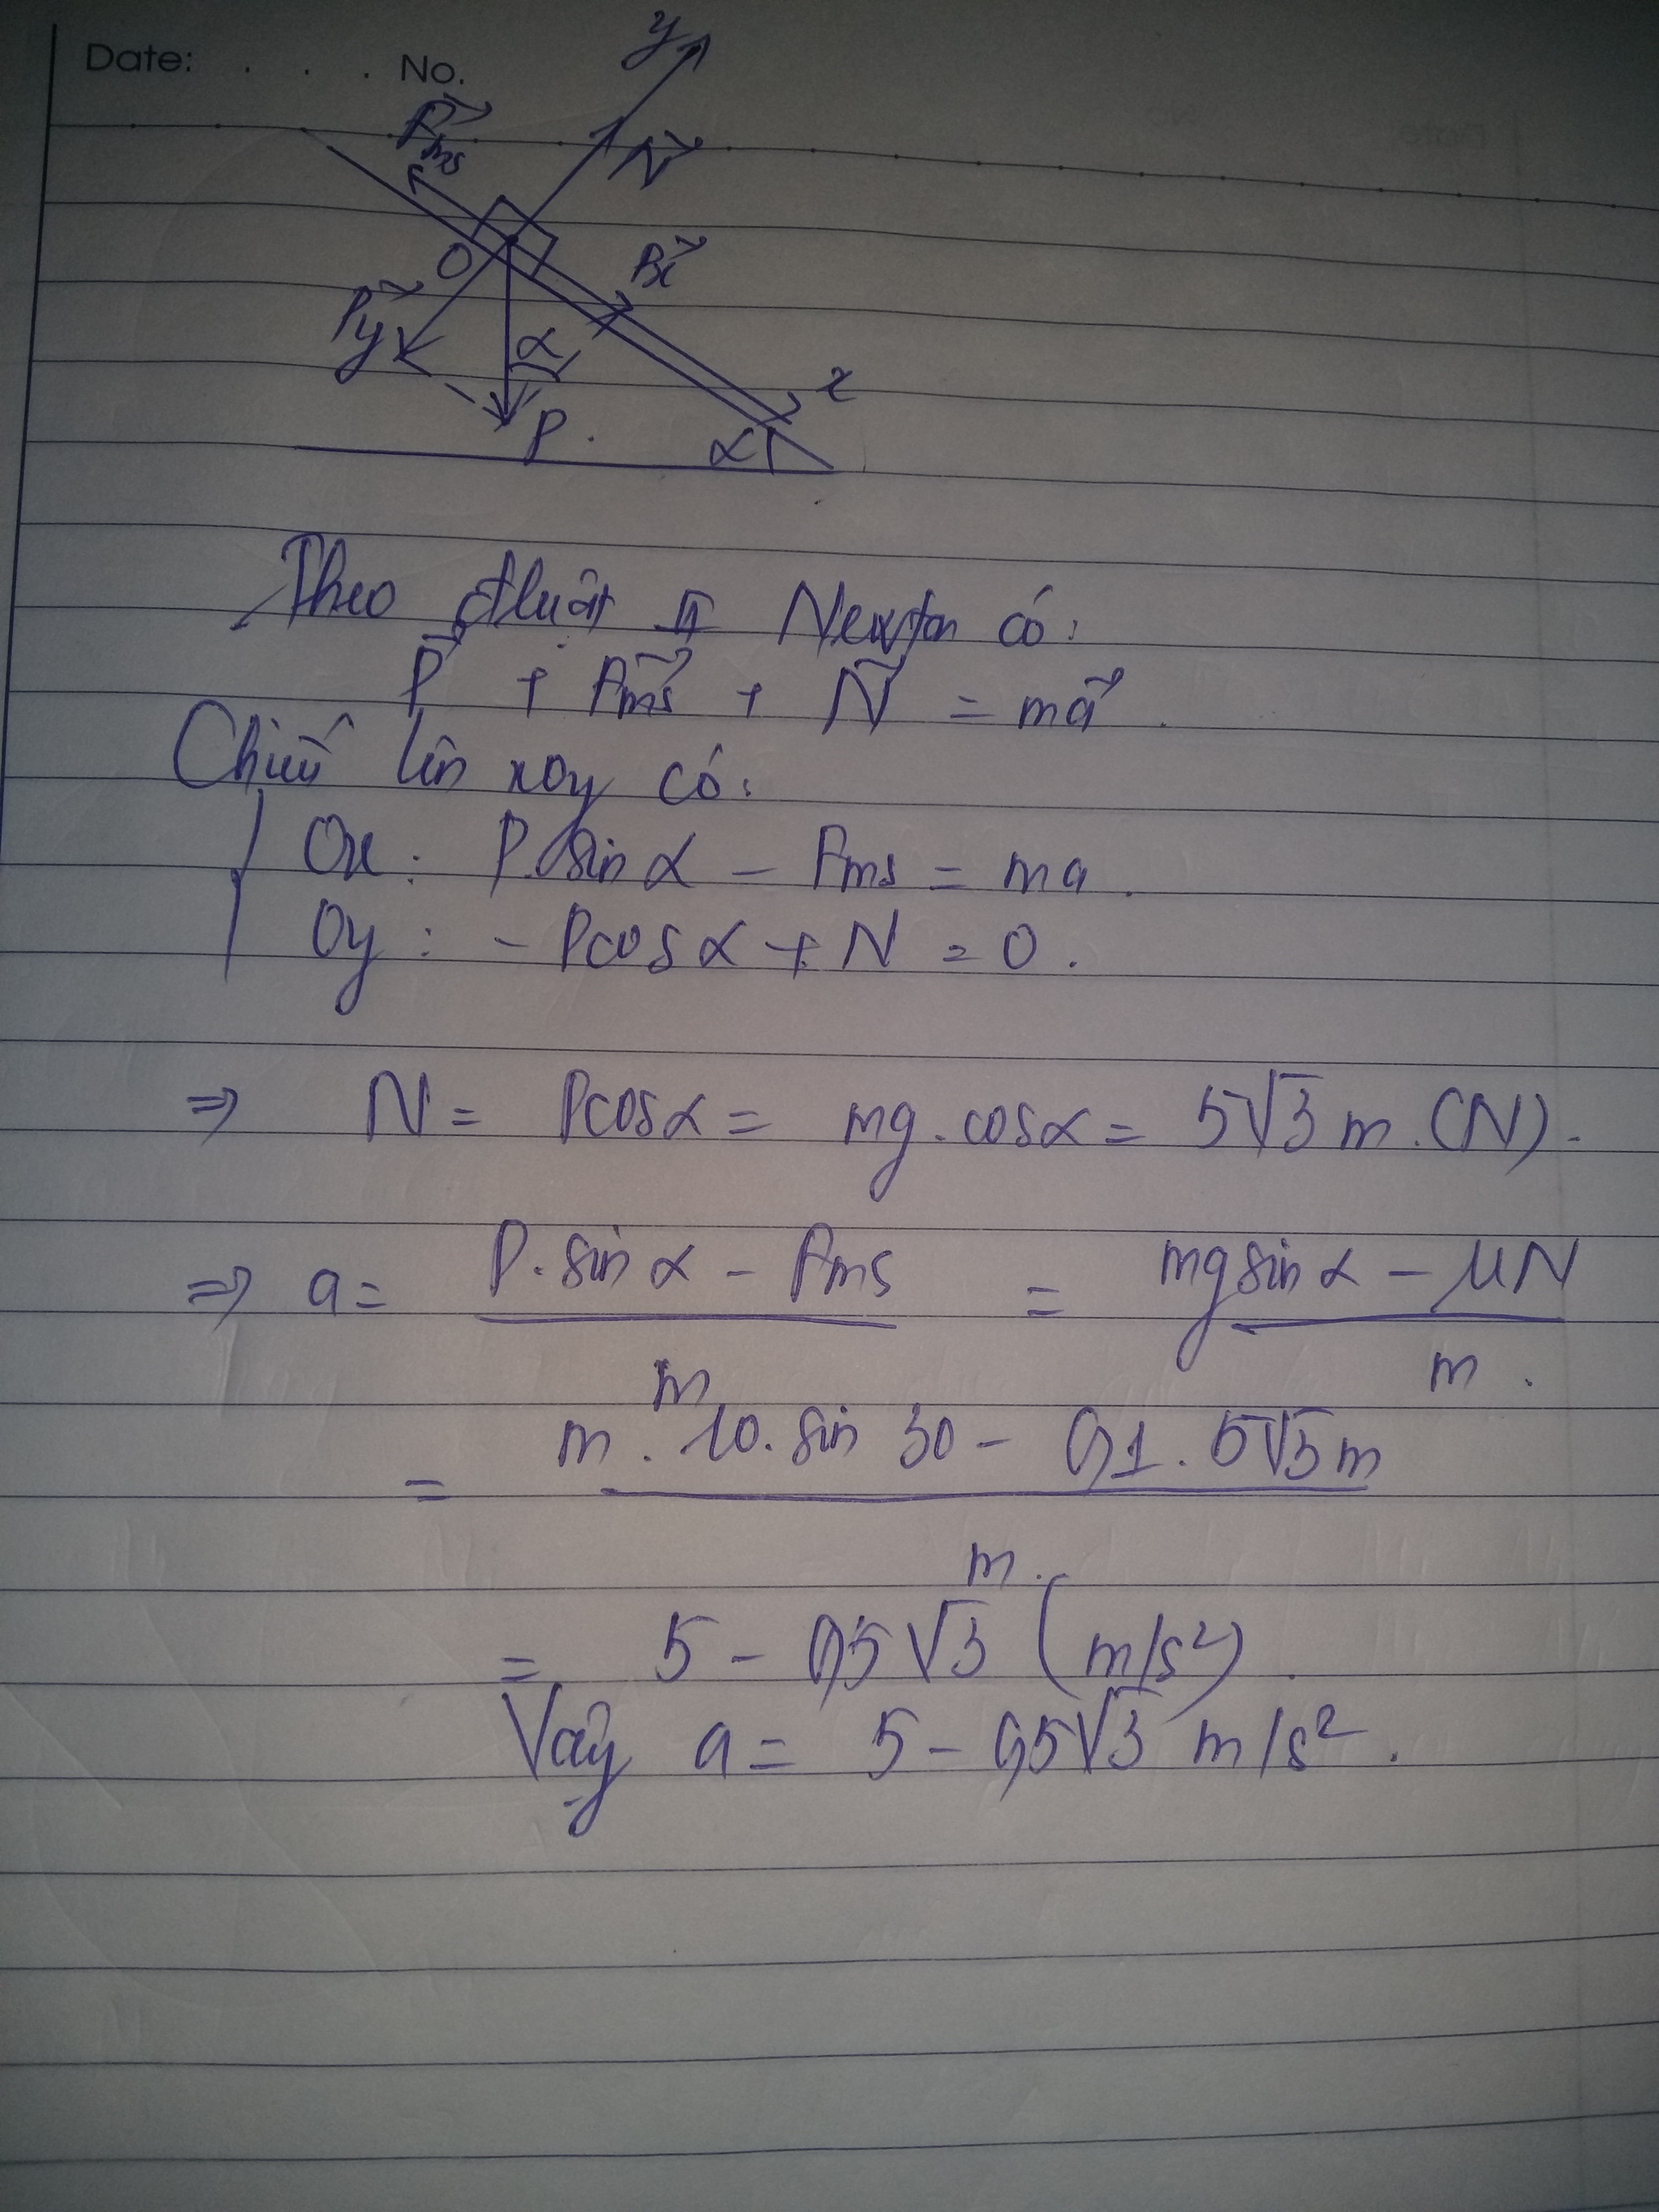 Date: . . . No.
y
Fms
N
O
Px
Py
α
x
P.
α
Theo đluật II Newton có:
P + Fms + N = ma.
Chiếu lên xoy có:
Ox: P.sin α - Fms = ma.
Oy: - Pcos α + N = 0.
=> N = Pcosα = mg.cosα = 5√3 m.(N).
=> a = P.sin α - Fms / m = mgsin α - μN / m.
= m.10.sin 30 - 0,1.5√3m / m.
= 5 - 0,5√3 (m/s²).
Vậy a = 5 - 0,5√3 m/s².